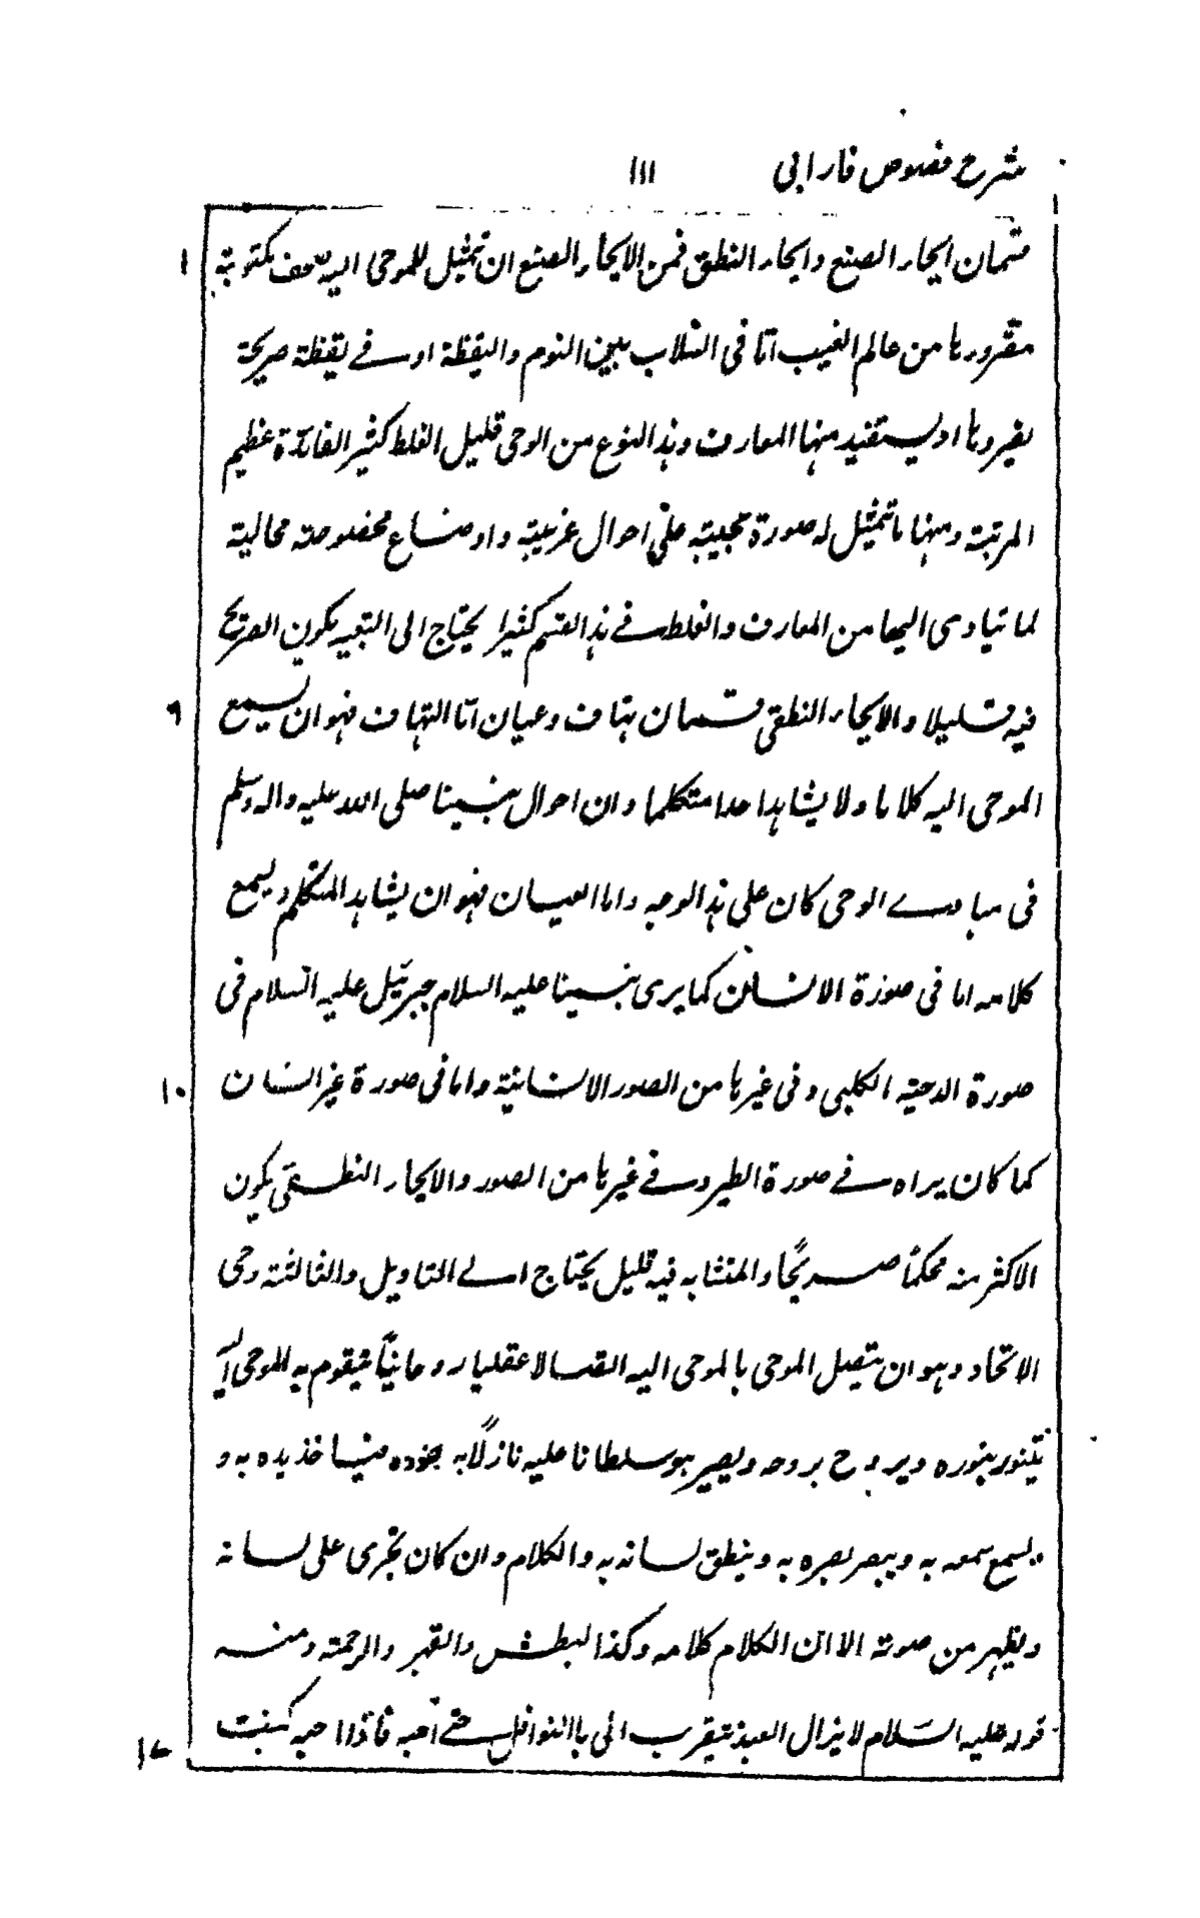 شرح فصوص فارابی ۱۱۱
قسمان ایحاء الصنع وایحاء النطق فمن الایحاء الصنع ان تمثیل للموحی الیه صحف مکتوبة ۱
مقرورہا من عالم الغیب اما فی انسلاب بین النوم والیقظة او فے یقظة صریحة
یغیرونا او لیستفید منہا المعارف وہذا النوع من الوحی قلیل الغلط کثیر الفائدة عظیم
المرتبة ومنہا ما تمثیل له صورة عجیبة علی احوال غریبة واوضاع مخصوصة محالیة
لما تیادی الیہا من المعارف والغلط فے ہذا القسم کثیرا یحتاج الی التعبیر یکون الصریح
فیه قلیلا والایحاء النطقی قسمان ہتاف وعیان اما الہتاف فہو ان یسمع ۶
الموحی الیه کلاما ولا یشاہد احدا متکلما وان احوال نبینا صلی الله علیه واله وسلم
فی مبادے الوحی کان علی ہذا الوجه واما العیان فہو ان یشاہد المتکلم ویسمع
کلامه اما فی صورة الانسان کما یری نبینا علیه السلام جبرئیل علیه السلام فی
صورة الدحیة الکلبی وفی غیرہا من الصور الانسانیة واما فی صورة غیر انسان ۱۰
کما کان یراہ فے صورة الطیر و فے غیرہا من الصور والایحاء النطقی یکون
الاکثر منه محکماً صریحًا والمتشابه فیه قلیل یحتاج الے التاویل والثالثة وحی
الاتحاد وہو ان یتصل الموحی بالموحی الیه اتصالا عقلیا روحانیاً فیقوم به الموحی الیه
یتنور بنوره ویروح بروحه ویصیر ہو سلطانا علیه نازلًا به بجنوده فیاخذ یده به و
ویسمع سمعه به ویبصر بصره به وینطق لسانه به والکلام وان کان یجری علی لسانه
ویظہر من صوته الا ان الکلام کلامه وکذا البطش والقہر والرحمة ومنه
قوله علیه السلام لا یزال العبد یتقرب الی بالنوافل حتے احبه فاذا احبه کنت ۱۷